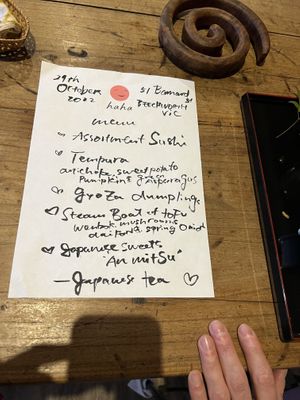 29th
October
2022
51 Bernard St
Beechworth
VIC
haha
menu
Assortment Sushi
Tempura
artichoke, sweet potato
pumpkins green asparagus
Gyoza dumplings
Steam Boat of tofu
wombok, mushrooms
daikon, spring onion
Japanese sweets
"An mitsu"
– Japanese tea